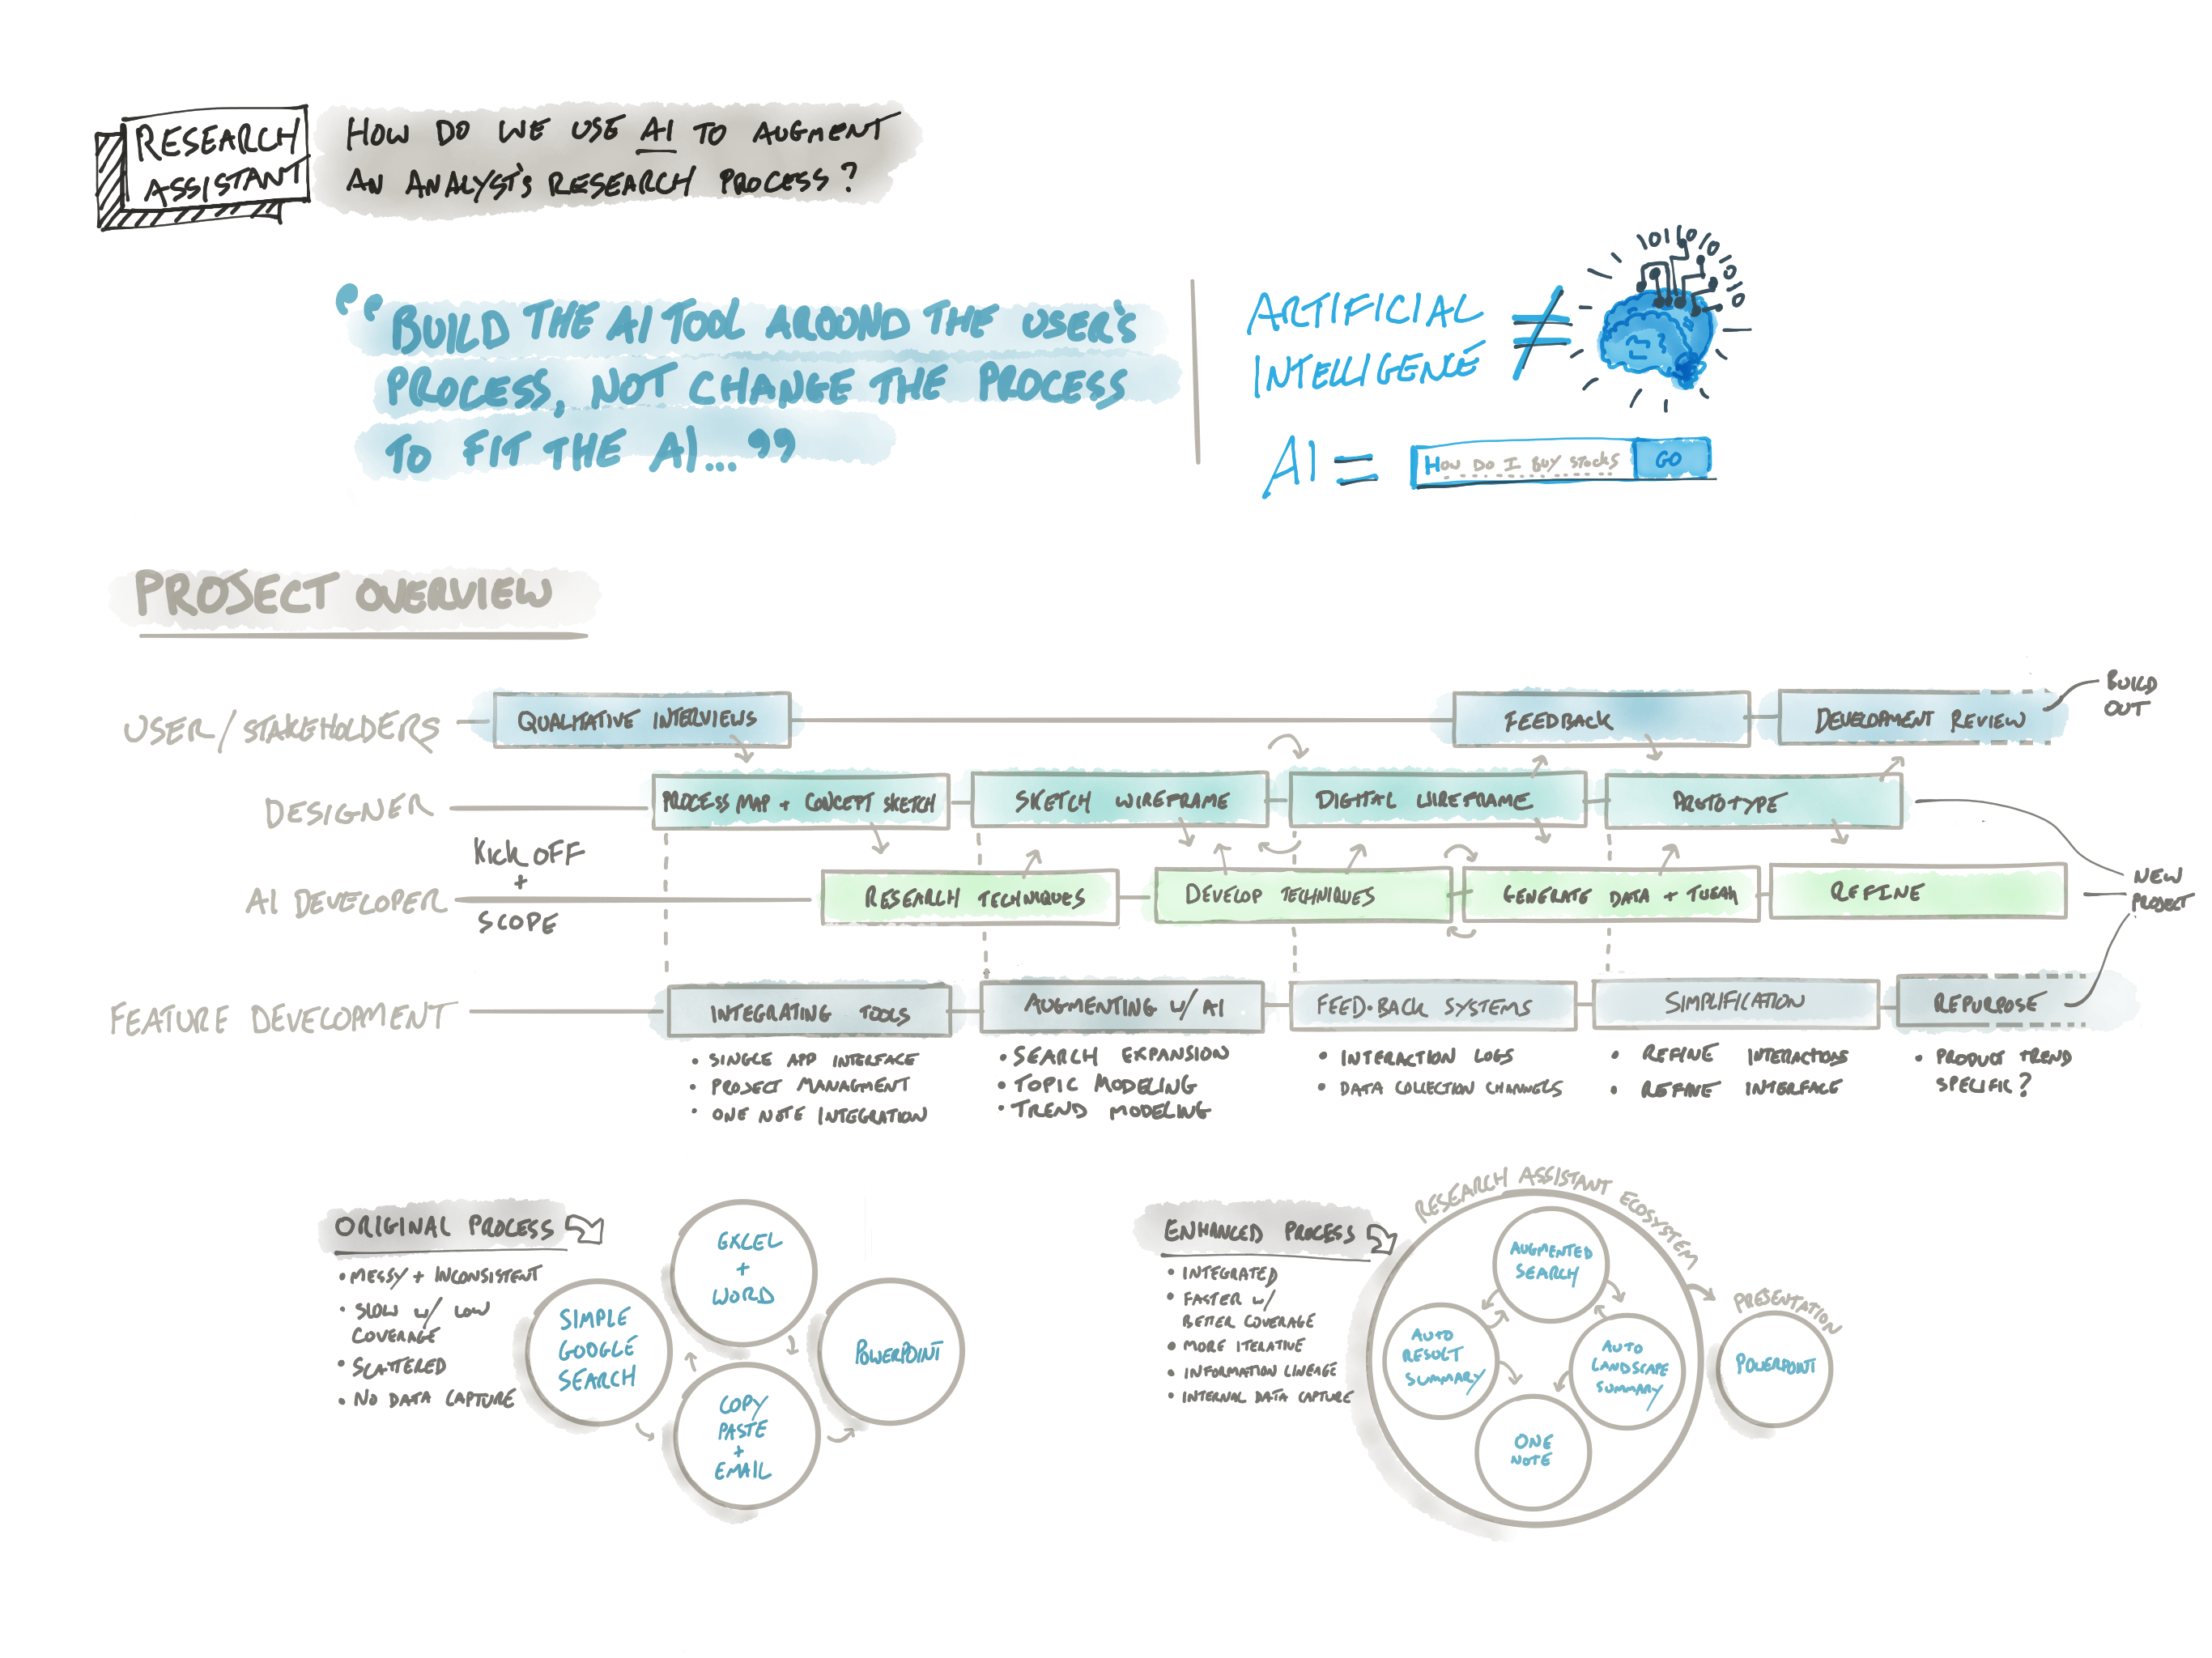 RESEARCH
ASSISTANT
HOW DO WE USE AI TO AUGMENT
AN ANALYST'S RESEARCH PROCESS?
"BUILD THE AI TOOL AROUND THE USER'S
PROCESS, NOT CHANGE THE PROCESS
TO FIT THE AI..."
ARTIFICIAL
INTELLIGENCE ≠
10110101010
AI =
HOW DO I BUY STOCKS
GO
PROJECT OVERVIEW
USER/STAKEHOLDERS
QUALITATIVE INTERVIEWS
FEEDBACK
DEVELOPMENT REVIEW
BUILD
OUT
DESIGNER
PROCESS MAP + CONCEPT SKETCH
SKETCH WIREFRAME
DIGITAL WIREFRAME
PROTOTYPE
KICK OFF
+
SCOPE
AI DEVELOPER
RESEARCH TECHNIQUES
DEVELOP TECHNIQUES
GENERATE DATA + TWEAK
REFINE
NEW
PROJECT
FEATURE DEVELOPMENT
INTEGRATING TOOLS
AUGMENTING W/ AI
FEED-BACK SYSTEMS
SIMPLIFICATION
REPURPOSE
• SINGLE APP INTERFACE
• PROJECT MANAGMENT
• ONE NOTE INTEGRATION
• SEARCH EXPANSION
• TOPIC MODELING
• TREND MODELING
• INTERACTION LOGS
• DATA COLLECTION CHANNELS
• REFINE INTERACTIONS
• REFINE INTERFACE
• PRODUCT TREND
SPECIFIC?
ORIGINAL PROCESS
• MESSY + INCONSISTENT
• SLOW W/ LOW
COVERAGE
• SCATTERED
• NO DATA CAPTURE
SIMPLE
GOOGLE
SEARCH
EXCEL
+
WORD
COPY
PASTE
+
EMAIL
POWERPOINT
ENHANCED PROCESS
• INTEGRATED
• FASTER W/
BETTER COVERAGE
• MORE ITERATIVE
• INFORMATION LINEAGE
• INTERNAL DATA CAPTURE
RESEARCH ASSISTANT ECOSYSTEM
AUGMENTED
SEARCH
AUTO
RESULT
SUMMARY
AUTO
LANDSCAPE
SUMMARY
ONE
NOTE
PRESENTATION
POWERPOINT